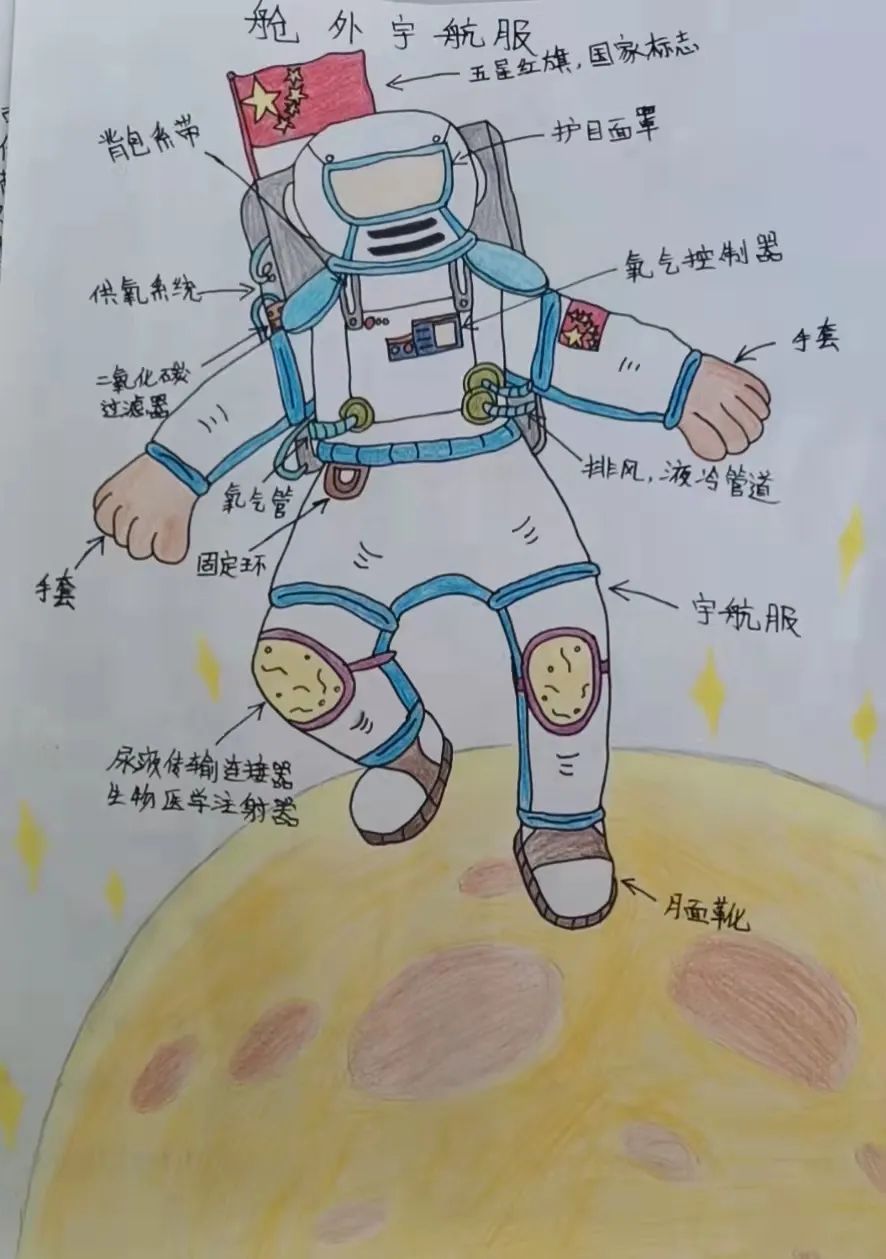 舱外宇航服
五星红旗,国家标志
背包系带
护目面罩
氧气控制器
供氧系统
手套
二氧化碳
过滤器
排风,液冷管道
氧气管
固定环
手套
宇航服
尿液传输连接器
生物医学注射器
月面靴